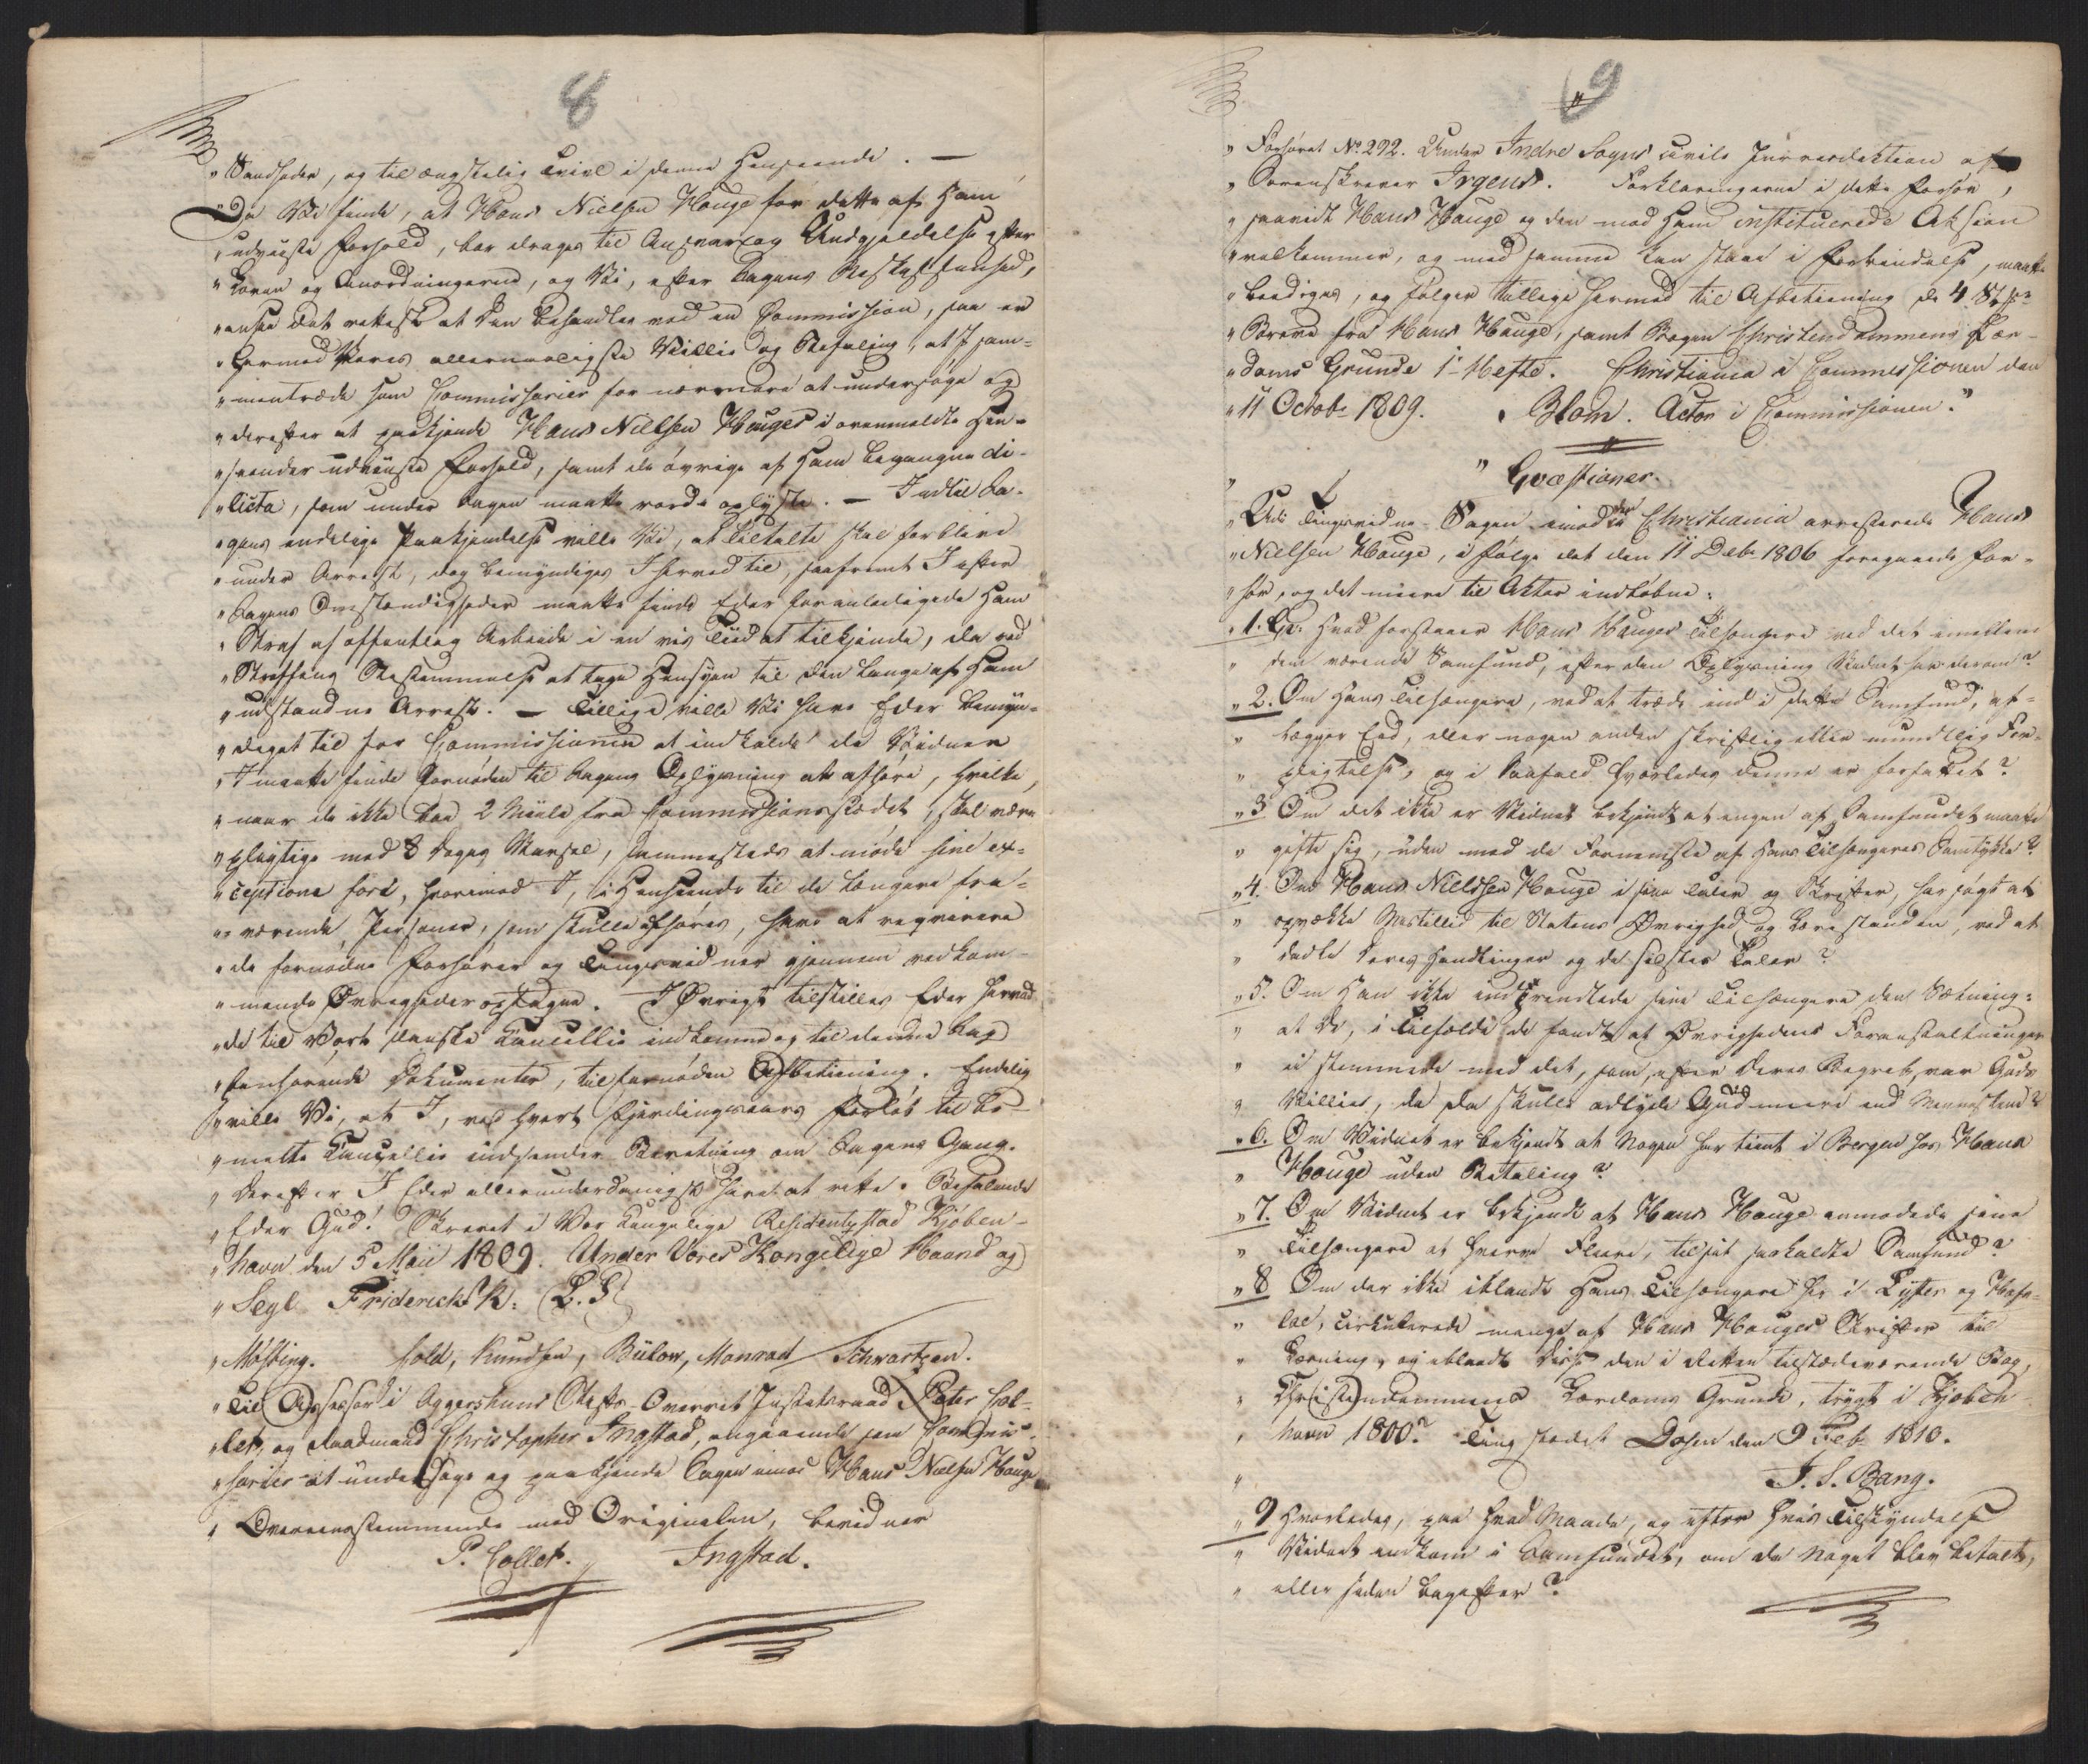 8
„Sandheder, og til ængstelig Tvivl i denne Henseende. —
„Da Vi finde, at Hans Nielsen Hauge for dette af Ham
„udviiste Forhold, bør drages til Ansvar og Undgjeldelse efter
„Loven og Anordningerne, og Vi, efter Sagens Beskaffenhed,
„ansee det rettest at den behandles ved en Commission, saa er
„hermed Vores allernaadigste Villie og Befaling, at I sam-
„mentræde som Commissarier for nærmere at undersøge og
„derefter at paakjende Hans Nielsen Hauges i ovenmeldte Hen-
„seender udviiste Forhold, samt de øvrige af Ham begangne de-
„licta, som under Sagen maatte vorde oplyste. — Indtil Sa-
„gens endelige Paakjendelse ville Vi, at Tiltalte skal forblive
„under Arrest, dog bemyndiges I herved til, saafremt I efter
„Sagens Omstændigheder maatte finde Eder foranledigede Ham
„Straf af offentlig Arbeide i en vis Tiid at tilkjende, da ved
„Straffens Bestemmelse at tage Hensyn til den lange af Ham
„udstandne Arrest. — Tillige ville Vi have Eder bemyn-
„diget til for Commissionen at indkalde de Vidner
„I maatte finde fornøden til Sagens Oplysning at afhøre, hvilke,
„naar de ikke boe 2 Miile fra Commissionsstædet, skal være
„pligtige med 8 Dages Varsel, sammesteds at møde sine ex-
„ceptione fori, hvorimod I, i Henseende til de længere fra-
„værende Personer, som skulle afhøres, have at reqvirere
„de fornødne Forhører og Tingsvidner gjennem vedkom-
„mende Øvrigheder optagne. I Øvrigt tilstilles Eder herved
„de til Vort danske Cancellie indkomne og til denne Sag
„henhørende Dokumenter, til fornøden Afbetiening. Endelig
„ville Vi, at I, ved hvert Fjerdingaars Forløb til be-
„meldte Cancellie indsender Beretning om Sagens Gang.
„Derefter I Eder allerunderdanigst have at rette. Befalende
„Eder Gud! Skrevet i Vor Kongelige Residentzstad Kjøben-
„havn den 5 Maii 1809. Under Vores Kongelige Haand og
„Segl Friderich R: (L. S)
„Møsting. Cold, Knudsen, Bülow, Monrad Schwartzen.
„Til Assessor i Aggershuus Stifts-Overret Justitsraad Peter Col-
„let, og Raadmand Christopher Ingstad, angaaende som Commis-
„sarier at undersøge og paakjende Sagen imod Hans Nielsen Hauge
„Overeensstemmende med Originalen, bevidner
P. Collet. Ingstad.
9
„Forhøret No 292. Under Indre Sogns civile Jurisdiktion af
„Sorenskriver Irgens. Forklaringerne i dette Forhør,
„saavidt Hans Hauge og den mod Ham instituerede Aktion
„vedkommer, og med samme kan staae i Forbindelse, maatte
„beediges, og følger tillige hermed til Afbetiening de 4 St.
„Breve fra Hans Hauge, samt Bogen Christendommens Lær-
„doms Grunde 1te Hefte. Christiania i Commissionen den
„11 Octobr 1809. Blom. Actor i Commissionen."
„Qvæstioner.
„Tingsvidne-Sagen imod den i Christiania arresterede Hans
„Nielsen Hauge, i Følge det den 11 Decbr 1806 foregaaede For-
„hør, og det meere til Aktor indløbne:
„1. Qv: Hvad forstaaer Hans Hauges Tilhængere ved det imellem
„dem værende Samfund, efter den Oplysning Vidnet har derom?
„2. Om Hans Tilhængere, ved at træde ind i dette Samfund, af-
„lægger Eed, eller nogen anden skriftlig eller mundtlig For-
„pligtelse, og i saafald hvorledes denne er forfattet?
„3 Om det ikke er Vidnet bekjendt at ingen af Samfundet maatte
„gifte sig, uden med de Fornemste af Hans Tilhængeres Samtykke?
„4. Om Hans Nielsen Hauge i sine Taler og Skrifter, har søgt at
„opvække Mistillid til Statens Øvrighed og Lærestanden, ved at
„dadle deres Handlinger og de holdte Taler?
„5. Om Han ikke indprentede sine Tilhængere den Sætning:
„at de, i Tilfælde de fandt at Øvrighedens Foranstaltninger
„ei stemmede med det, som, efter deres Begreb, var Guds
„Villie, da de skulle adlyde Gud meere end Menneskene?
„6. Om Vidnet er bekjendt at Nogen har tient i Bergen hos Hans
„Hauge uden Betaling?
„7. Om Vidnet er bekjendt at Hans Hauge anmodede sine
„Tilhængere at hverve Fleere, til sit saakaldte Samfund?
„8 Om der ikke iblandt Hans Tilhængere her i Lyster og Hafs-
„loe, cirkulerede mange af Hans Hauges Skrifter til
„Læsning, og iblandt disse den i Retten tilstædeværende Bog,
„Christendommens Lærdoms Grunde, trygt i Kjøben-
„havn 1800? Tingstædet Dosen den 9 Feb 1810.
„ J. S. Bang.
„9 Hvorledes, paa hvad Maade, og efter hvis Tilskyndelse
„Vidnet indkom i Samfundet, om da Noget blev betalt,
„eller siden bagefter?